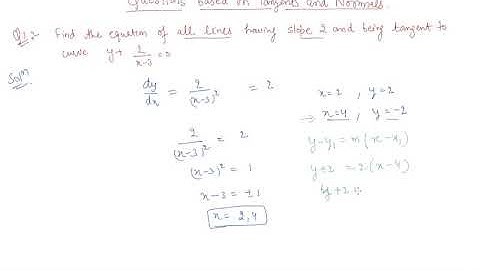 Questions based on Tangents and Normals.
Q1:- Find the equation of all lines having slope 2 and being tangent to
curve y + 2/(x-3) = 0
Solⁿ
dy/dx = 2/(x-3)² = 2
2/(x-3)² = 2
(x-3)² = 1
x-3 = ±1
x = 2, 4
x=2 , y=2
⇒ x=4 , y=-2
y-y₁ = m(x-x₁)
y+2 = 2(x-4)
y+2 =